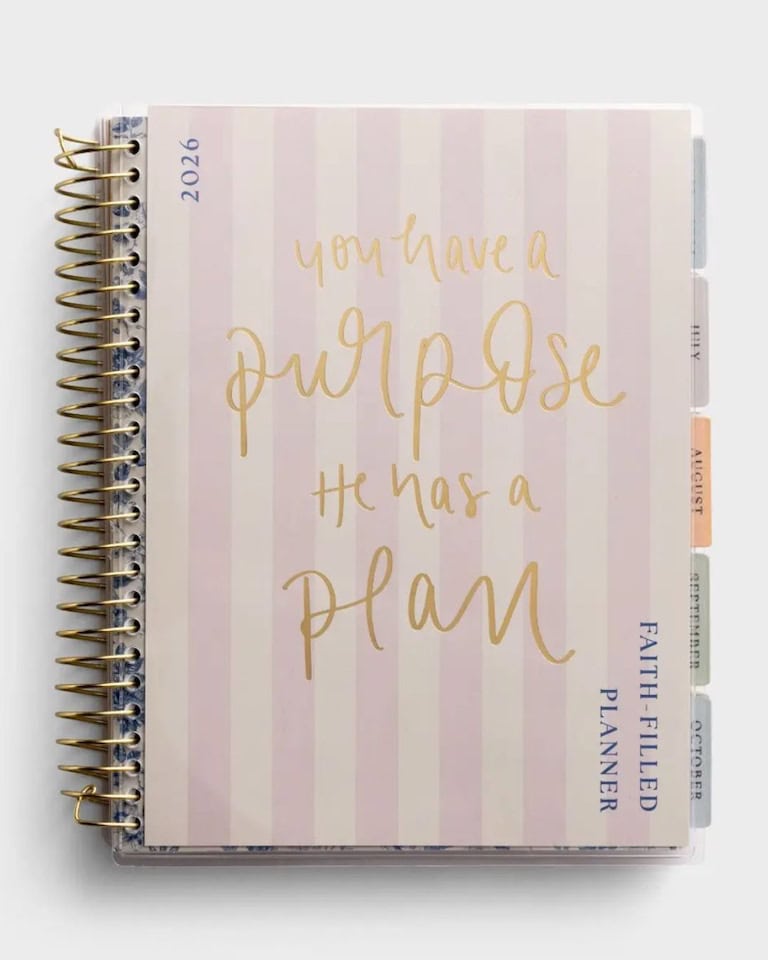 2026
you have a
purpose
He has a
plan
FAITH-FILLED
PLANNER
JULY
AUGUST
SEPTEMBER
OCTOBER